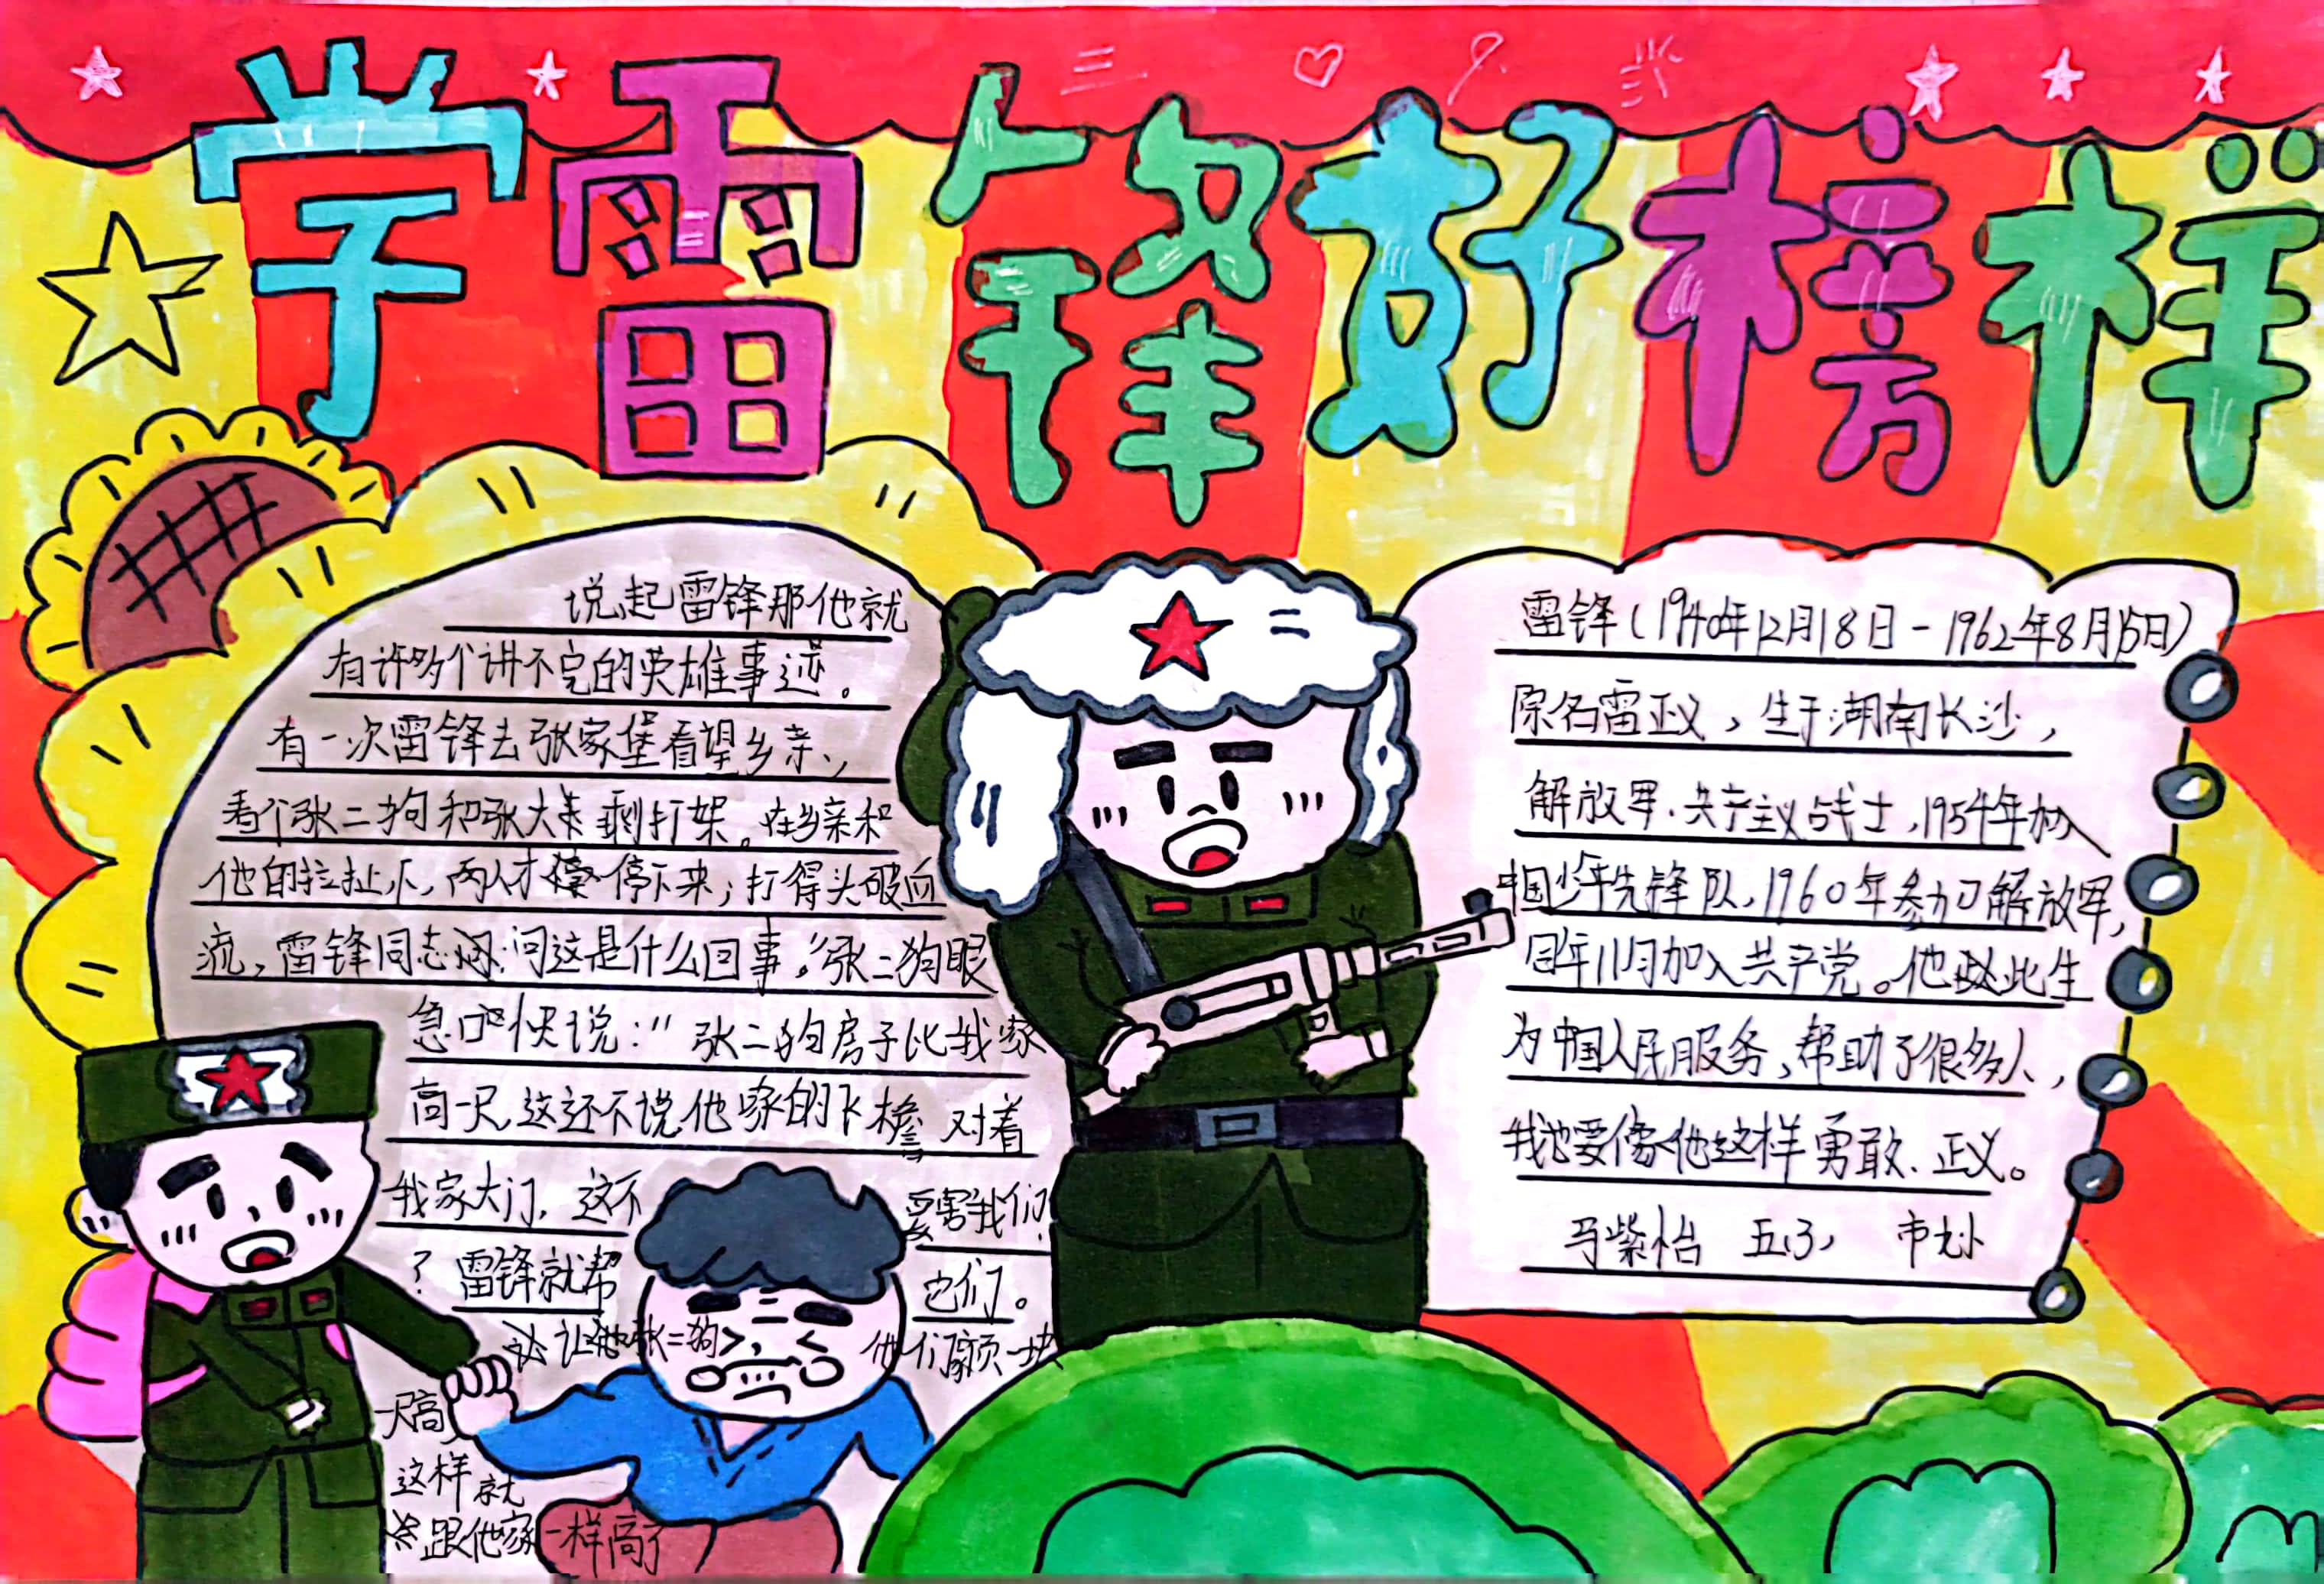 学雷锋好榜样
说起雷锋那他就
有许多个讲不完的英雄事迹。
有一次雷锋去张家堡看望乡亲、
看个张二狗和张大剩打架。在乡亲和
他的拉扯下,两人才停下来,打得头破血
流,雷锋同志问:问这是什么回事。"张二狗眼
急口快说:"张二狗房子比我家
高一尺,这还不说,他家的飞檐对着
我家大门,这不要害我们
?雷锋就帮他们。
让张二狗他们家颀一块
一尺高
这样就
跟他家一样高了
雷锋(1940年12月18日-1962年8月15日)
原名雷正义,生于湖南长沙,
解放军.共产主义战士,1954年加入
中国少年先锋队,1960年参加解放军,
同年11月加入共产党。他此生
为中国人民服务,帮助了很多人,
我也要像他这样勇敢、正义。
马紫怡 五(3)